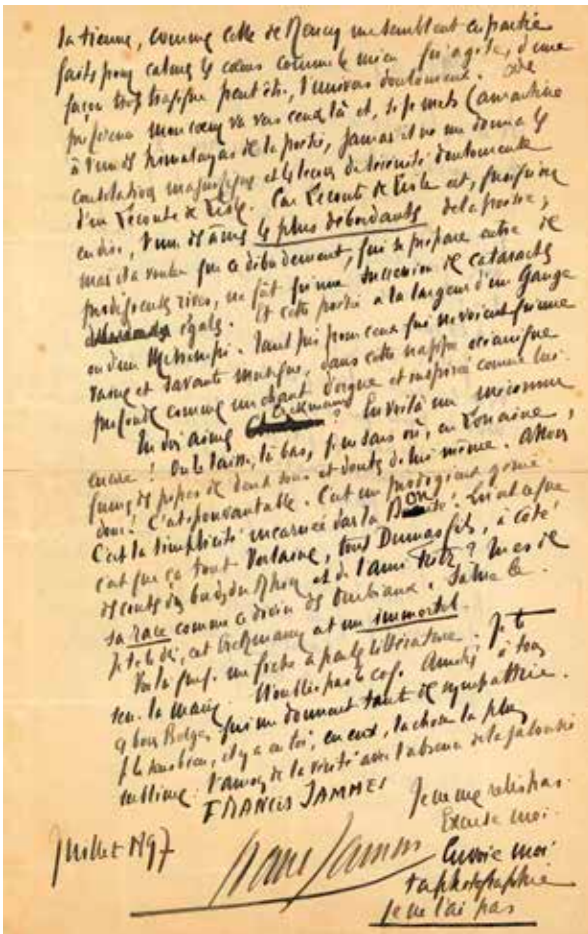 la tienne, comme celle de Nancy me semblent en partie
faits pour calmer les cœurs comme le mien qu'agite, d'une
façon trop tragique peut être, l'univers doucement.
mon cœur va vers ceux là et, si je mets Lamartine
à l'un des himalayas de la poésie, jamais il ne me donna les
consolations magnifiques et les leçons de sérénité
d'un Leconte de Lisle. Car Leconte de Lisle est, quoiqu'on
en dise, l'un des âmes les plus débordantes de la poésie,
mais il a voulu que ce débordement, qui se prépare entre de
prodigieuses rives, ne fût qu'une succession de cataractes
égales. Et cette poésie a la largeur d'un Gange
ou d'un Mississipi. Tant pis pour ceux qui ne voient qu'une
vaine et savante musique, dans cette nappe océanique
profonde comme un chant d'orgue et inspirée comme lui.
Tu dois aimer Erckmann ? En voilà un méconnu
encore ! On le laisse, là bas, je ne sais où, en Lorraine,
fumer des pipes de deux sous et douter de lui même. Allons
donc ! C'est épouvantable. C'est un prodigieux génie.
C'est la simplicité incarnée dans la Bonté ! Qu'est ce que
c'est que ça tout Verlaine, tout Dumas fils, à côté
des contes des bords du Rhin et de l'ami Fritz ?
sa race comme ce divin
Je te le dis, cet Erckmann est un immortel.
Voilà que je me fiche à parler littérature. Je te
serre la main. N'oublie pas le coq. Amitiés à tous
ces bons Belges qui me donnent tant de sympathie.
Je le sens bien, il y a en toi, en eux, la chose la plus
sublime : l'amour de la vérité avec l'absence de la jalousie
FRANCIS JAMMES
Juillet 1897
Francis Jammes
Je ne me relis pas.
Excuse moi.
Envoie moi
ta photographie
je ne l'ai pas